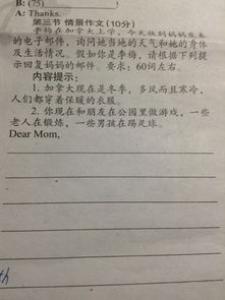 B: (75)
A: Thanks.
第三节 情景作文(10分)
李梅在加拿大上学，今天收到妈妈发来
的电子邮件，询问她当地的天气和她的身体
及生活情况。假如你是李梅，请根据下列提
示回复妈妈的邮件。要求：60词左右。
内容提示：
1. 加拿大现在是冬季，多风而且寒冷，
人们都穿着保暖的衣服。
2. 你现在和朋友在公园里做游戏，一些
老人在锻炼，一些男孩在踢足球。
Dear Mom,